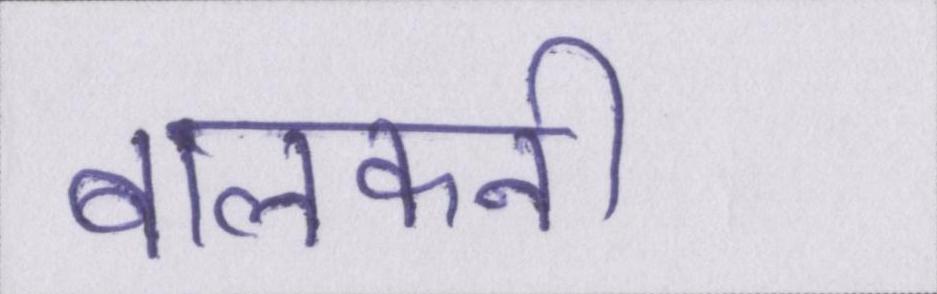 बालकनी